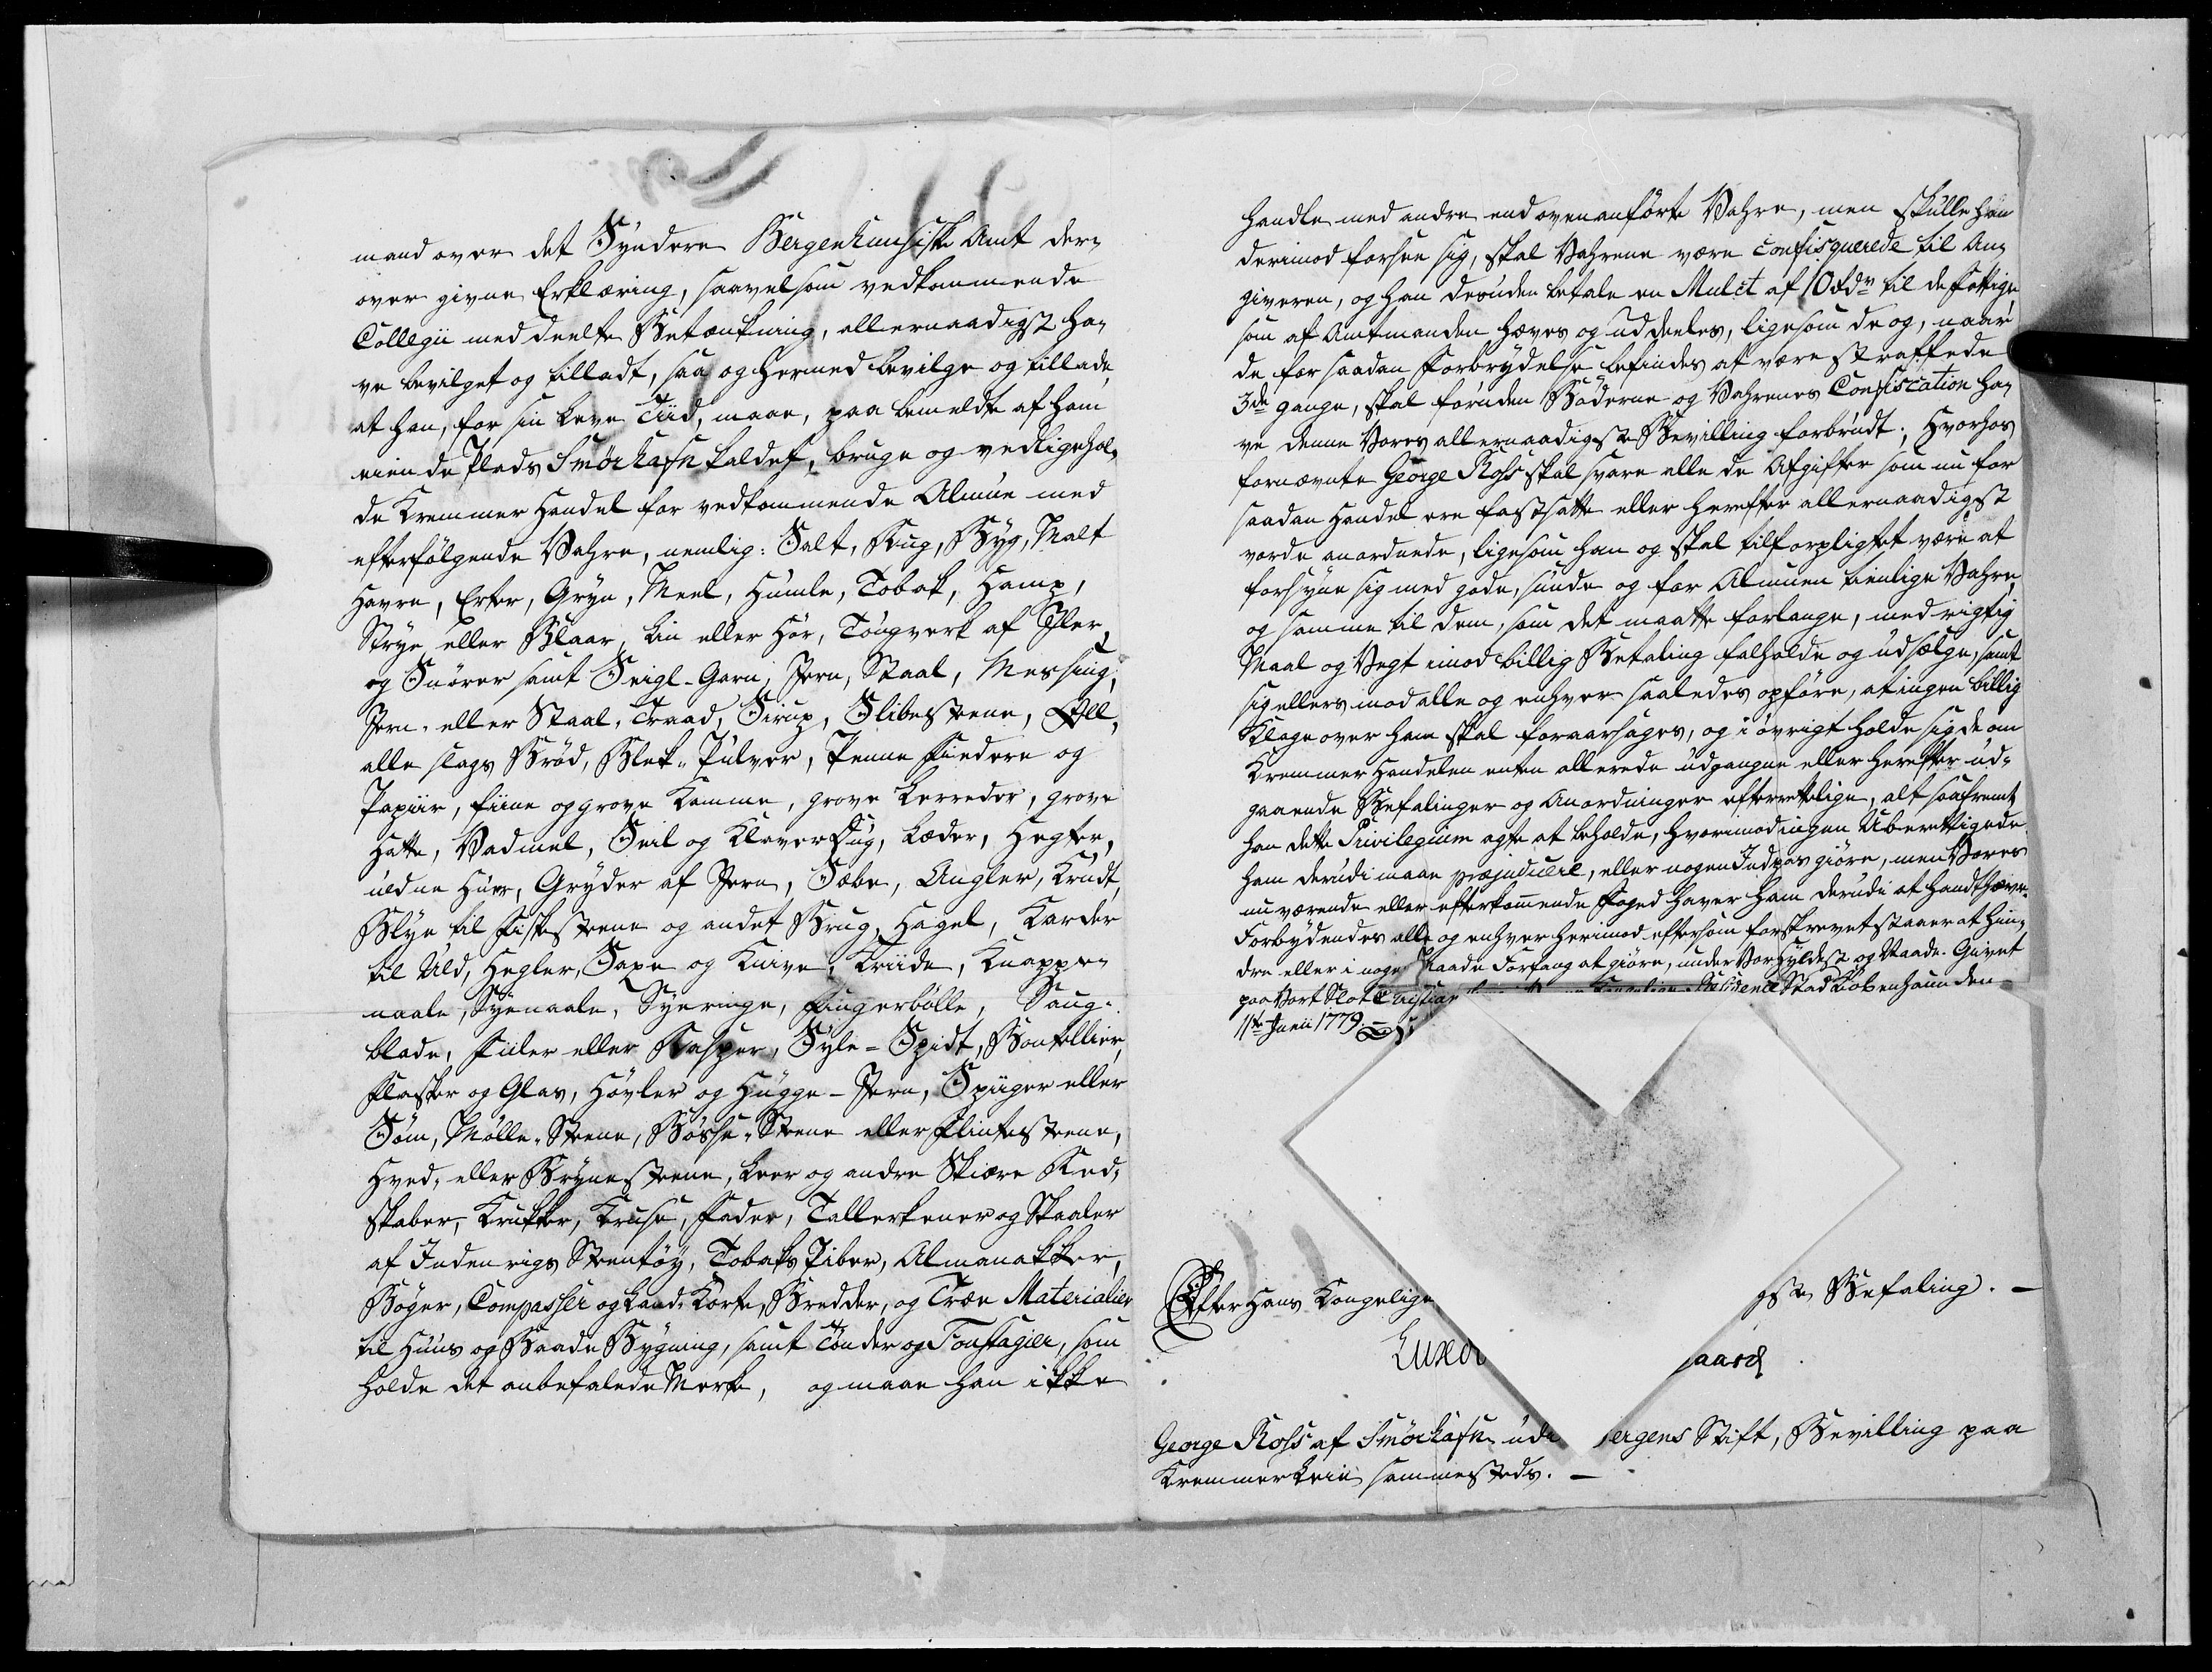 mand over det Syndere Bergenhuusiske Amt der-
over givne Erklæring, saavelsom vedkommende
Collegii meddeelte Betænkning, allernaadigst ha-
ve bevilget og tilladt, saa og hermed bevilge og tillade,
at han, for sin Leve Tiid, maae, paa bemeldte af ham
eiende Plads Smörhafn kaldet, bruge og vedligehol-
de Kremmer Handel for vedkommende Almue med
efterfölgende Vahre, nemlig: Salt, Rug, Byg, Malt
Havre, Erter, Gryn, Meel, Humle, Tobak, Hamp,
Strye eller Blaar, Liin eller Hör, Tougverk af
og Snörer samt Seigl-Garn, Jern, Staal, Messing,
Jern- eller Staal-Traad, Sirup, Slibesteene, Öll,
alle slags Bröd, Blek-Pulver, Penne Fiedere og
Papiir, fiine og grove Kamme, grove Lerreder, grove
Hatte, Vadmel, Seil og Klaver Dug, Læder, Hegter,
uldne Huer, Gryder af Jern, Sæbe, Angler, Krudt,
Blye til Fiskesteene og andet Brug, Hagel, Karder
til Uld, Hegler, Saxe og Knive, Kriide, Knappe-
naale, Syenaale, Syeringe, Fingerbölle, Saug-
blade, Fiiler eller Rasper, Syle-Spidt, Bouteillier,
Flasker og Glas, Hövler og Hugge-Jern, Spiiger eller
Söm, Mölle-Steene, Bösse-Steene eller Flintesteene,
Hved- eller Brynesteene, Leer og andre Skiære Red-
skaber, Krukker, Kruse, Fader, Tallerkener og Skaaler
af Indenrigs Steentöy, Tobaks Piber, Almanakker,
Böger, Compasser og Land-Korte, Bredder, og Træe Materialier
til Huus og Baade Bygning, samt Tönder og Foustagier, som
holde det anbefalede Merke, og maae han ikke
handle med andre end ovenanförte Vahre, men skulle han
derimod forsee sig, skal Vahrene være confisquerede til An-
giveren, og han desuden betale en Mulct af 10 Rdr til de fattige
som af Amtmanden hæves og uddeeles, ligesom de og, naar
de for saadan Forbrydelse befindes at være straffede
3de gange, skal foruden Böderne og Vahrenes Confiscation ha-
ve denne Vores allernaadigste Bevilling forbrudt; Hvorhos
fornævnte George Ross skal svare alle de Afgifter som nu for
saadan Handel ere fastsatte eller herefter allernaadigst
vorde anordnede, ligesom han og skal tilforpligtet være at
forsyne sig med gode, sunde og for Almuen tienlige Vahre,
og samme til dem, som det maatte forlange, med rigtig
Maal og Vegt imod billig Betaling falholde og udsælge, samt
sig ellers mod alle og enhver saaledes opföre, at ingen billig
Klage over ham skal foraarsages, og i övrigt holde sig de om
Kremmer Handelen enten allerede udgangne eller herefter ud-
gaaende Befalinger og Anordninger efterrettelige, alt saafremt
han dette Privilegium agte at beholde, hvorimod ingen Uberettigede
ham derudi maae præjudicere, eller nogen Indpas giöre, men Vores
nu værende eller efterkommende Foged haver ham derudi at handthæve.
Forbydendes alle og enhver herimod eftersom forskrevet staaer at hin-
dre eller i nogen Maade Forfang at giöre, under Vor Hyldest og Naade. Givet
paa Vort Slot Christian Kongelige Residence Stad Kiöbenhavn den
11te Junii 1779.
Efter Hans Kongelige gste Befaling. –
Luxdo aard
George Ross af Smörhafn udi ergens Stift, Bevilling paa
Kremmerleie sammesteds. –